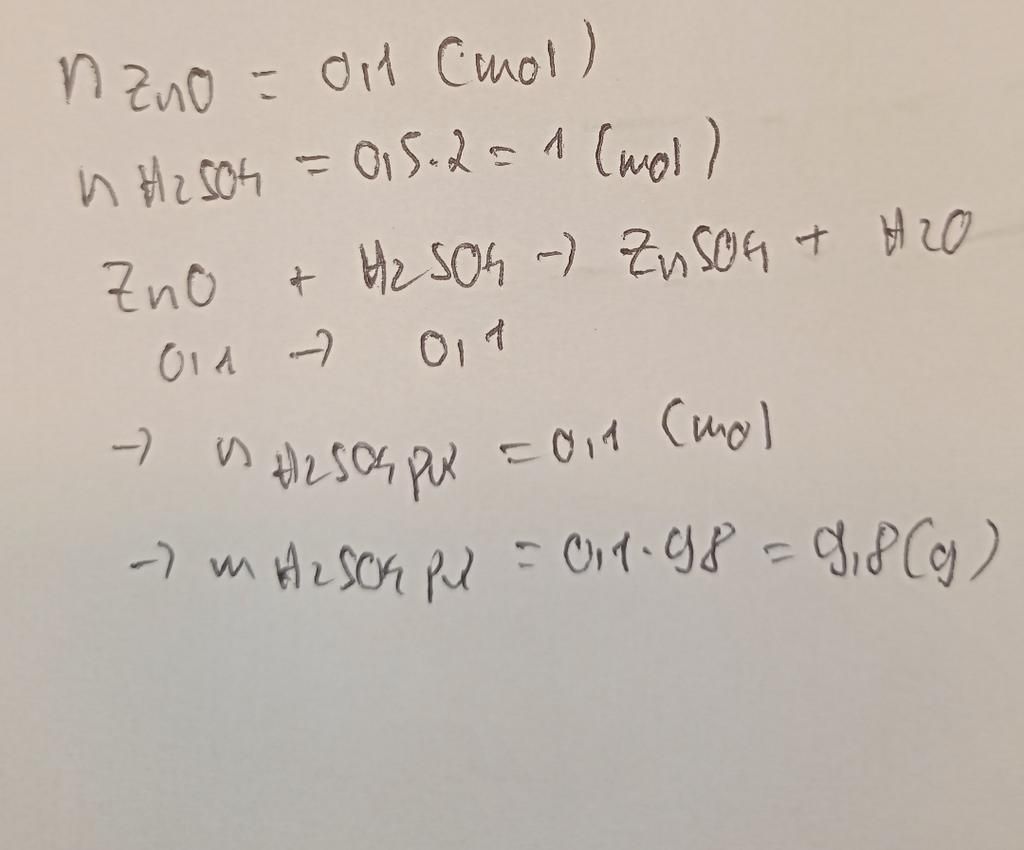 n ZnO = 0,1 (mol)
n H2SO4 = 0,5.2 = 1 (mol)
ZnO + H2SO4 → ZnSO4 + H2O
0,1 → 0,1
→ n H2SO4 pư = 0,1 (mol
→ m H2SO4 pư = 0,1.98 = 9,8(g)